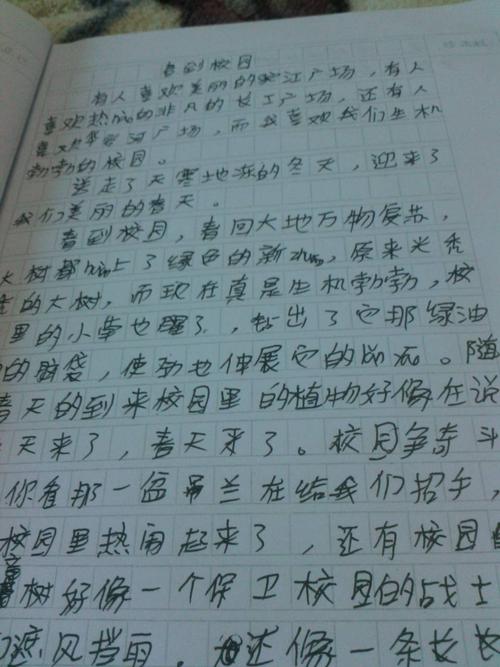 春到校园
有人喜欢美丽的江广场，有人
喜欢热nao的非凡的长工广场，还有人
喜欢河广场，而我喜欢我们生机
勃勃的校园。
送走了天寒地冻的冬天，迎来了
我们美丽的春天。
春到校园，春回大地万物复苏，
大树都上了绿色的新，原来光秃
的大树，而现在真是生机勃勃，校
里的小草也醒了，出了它那绿油
的脑袋，使劲地伸展它的。随
春天的到来校园里的植物好像在说
天来了，春天来了。校园争奇斗
你看那一盆吊兰在给我们招手，
校园里热闹起来了，还有校园
树好像一个保卫校园的战士
遮风挡雨。还像一条长长